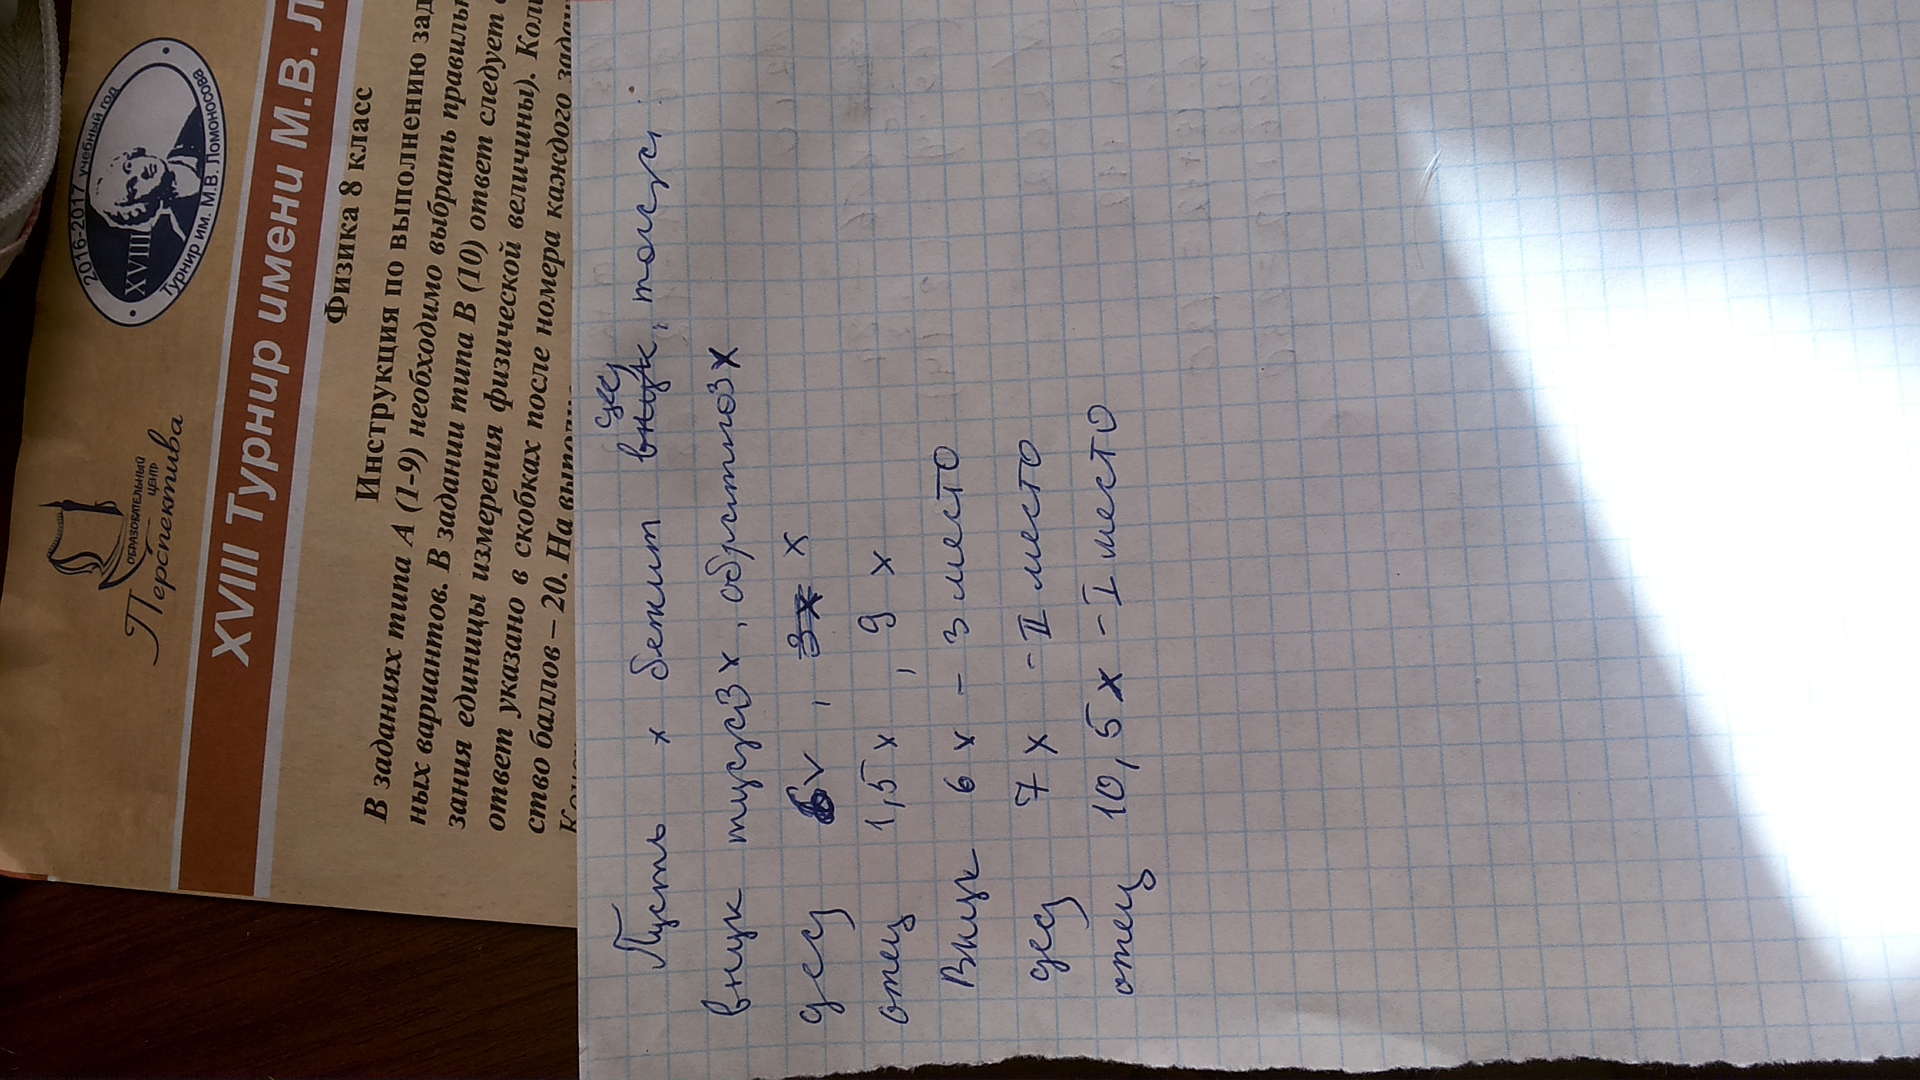 ОБРАЗОВАТЕЛЬНЫЙ
ЦЕНТР
Перспектива
• 2016-2017 учебный год •
XVIII
Турнир им. М.В. Ломоносова
XVIII Турнир имени М.В. Л
Физика 8 класс
Инструкция по выполнению зад
В заданиях типа А (1-9) необходимо выбрать правиль
ных вариантов. В задании типа В (10) ответ следует
зания единицы измерения физической величины). Коли
ответ указано в скобках после номера каждого задан
ство баллов – 20. На выполн
Пусть x бежит дед, тогда
внук туда 3x, обратно 3x
дед 6x, x
отец 1,5x, 9x
Внук 6x – 3 место
дед 7x – II место
отец 10,5x – I место